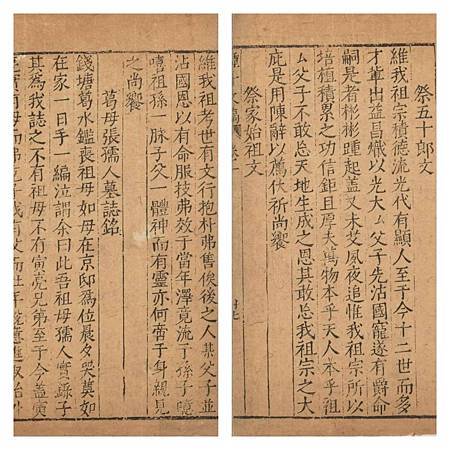 祭五十郎文
維我祖宗積德流光代有顯人至于今十二世而多
才軰出益昌熾以光大厶父子先沾國寵遂有爵命
嗣是者彬彬踵起蓋又未艾夙夜追惟我祖宗所以
培植積累之功信鉅且厚夫萬物本乎天人本乎祖
厶父子不敢忘天地生成之恩其敢忘我祖宗之大
庇是用陳辭以薦伏祈尚饗
祭家始祖文
維我祖考世有文行抱朴弗售俟後之人某父子並
沾國恩以有命服技弗效于當年澤竟流于孫子噫
嘻祖孫一脉子父一體神而有靈亦何啻于身親見
之尚饗
葛母張孺人墓誌銘
錢塘葛水鑑喪祖母如母在京邸為位晨夕哭莫如
在家一日手一編泣謂余曰此吾祖母孺人實錄子
其為我誌之不有祖母不有寅亮兄弟至于今蓋寅